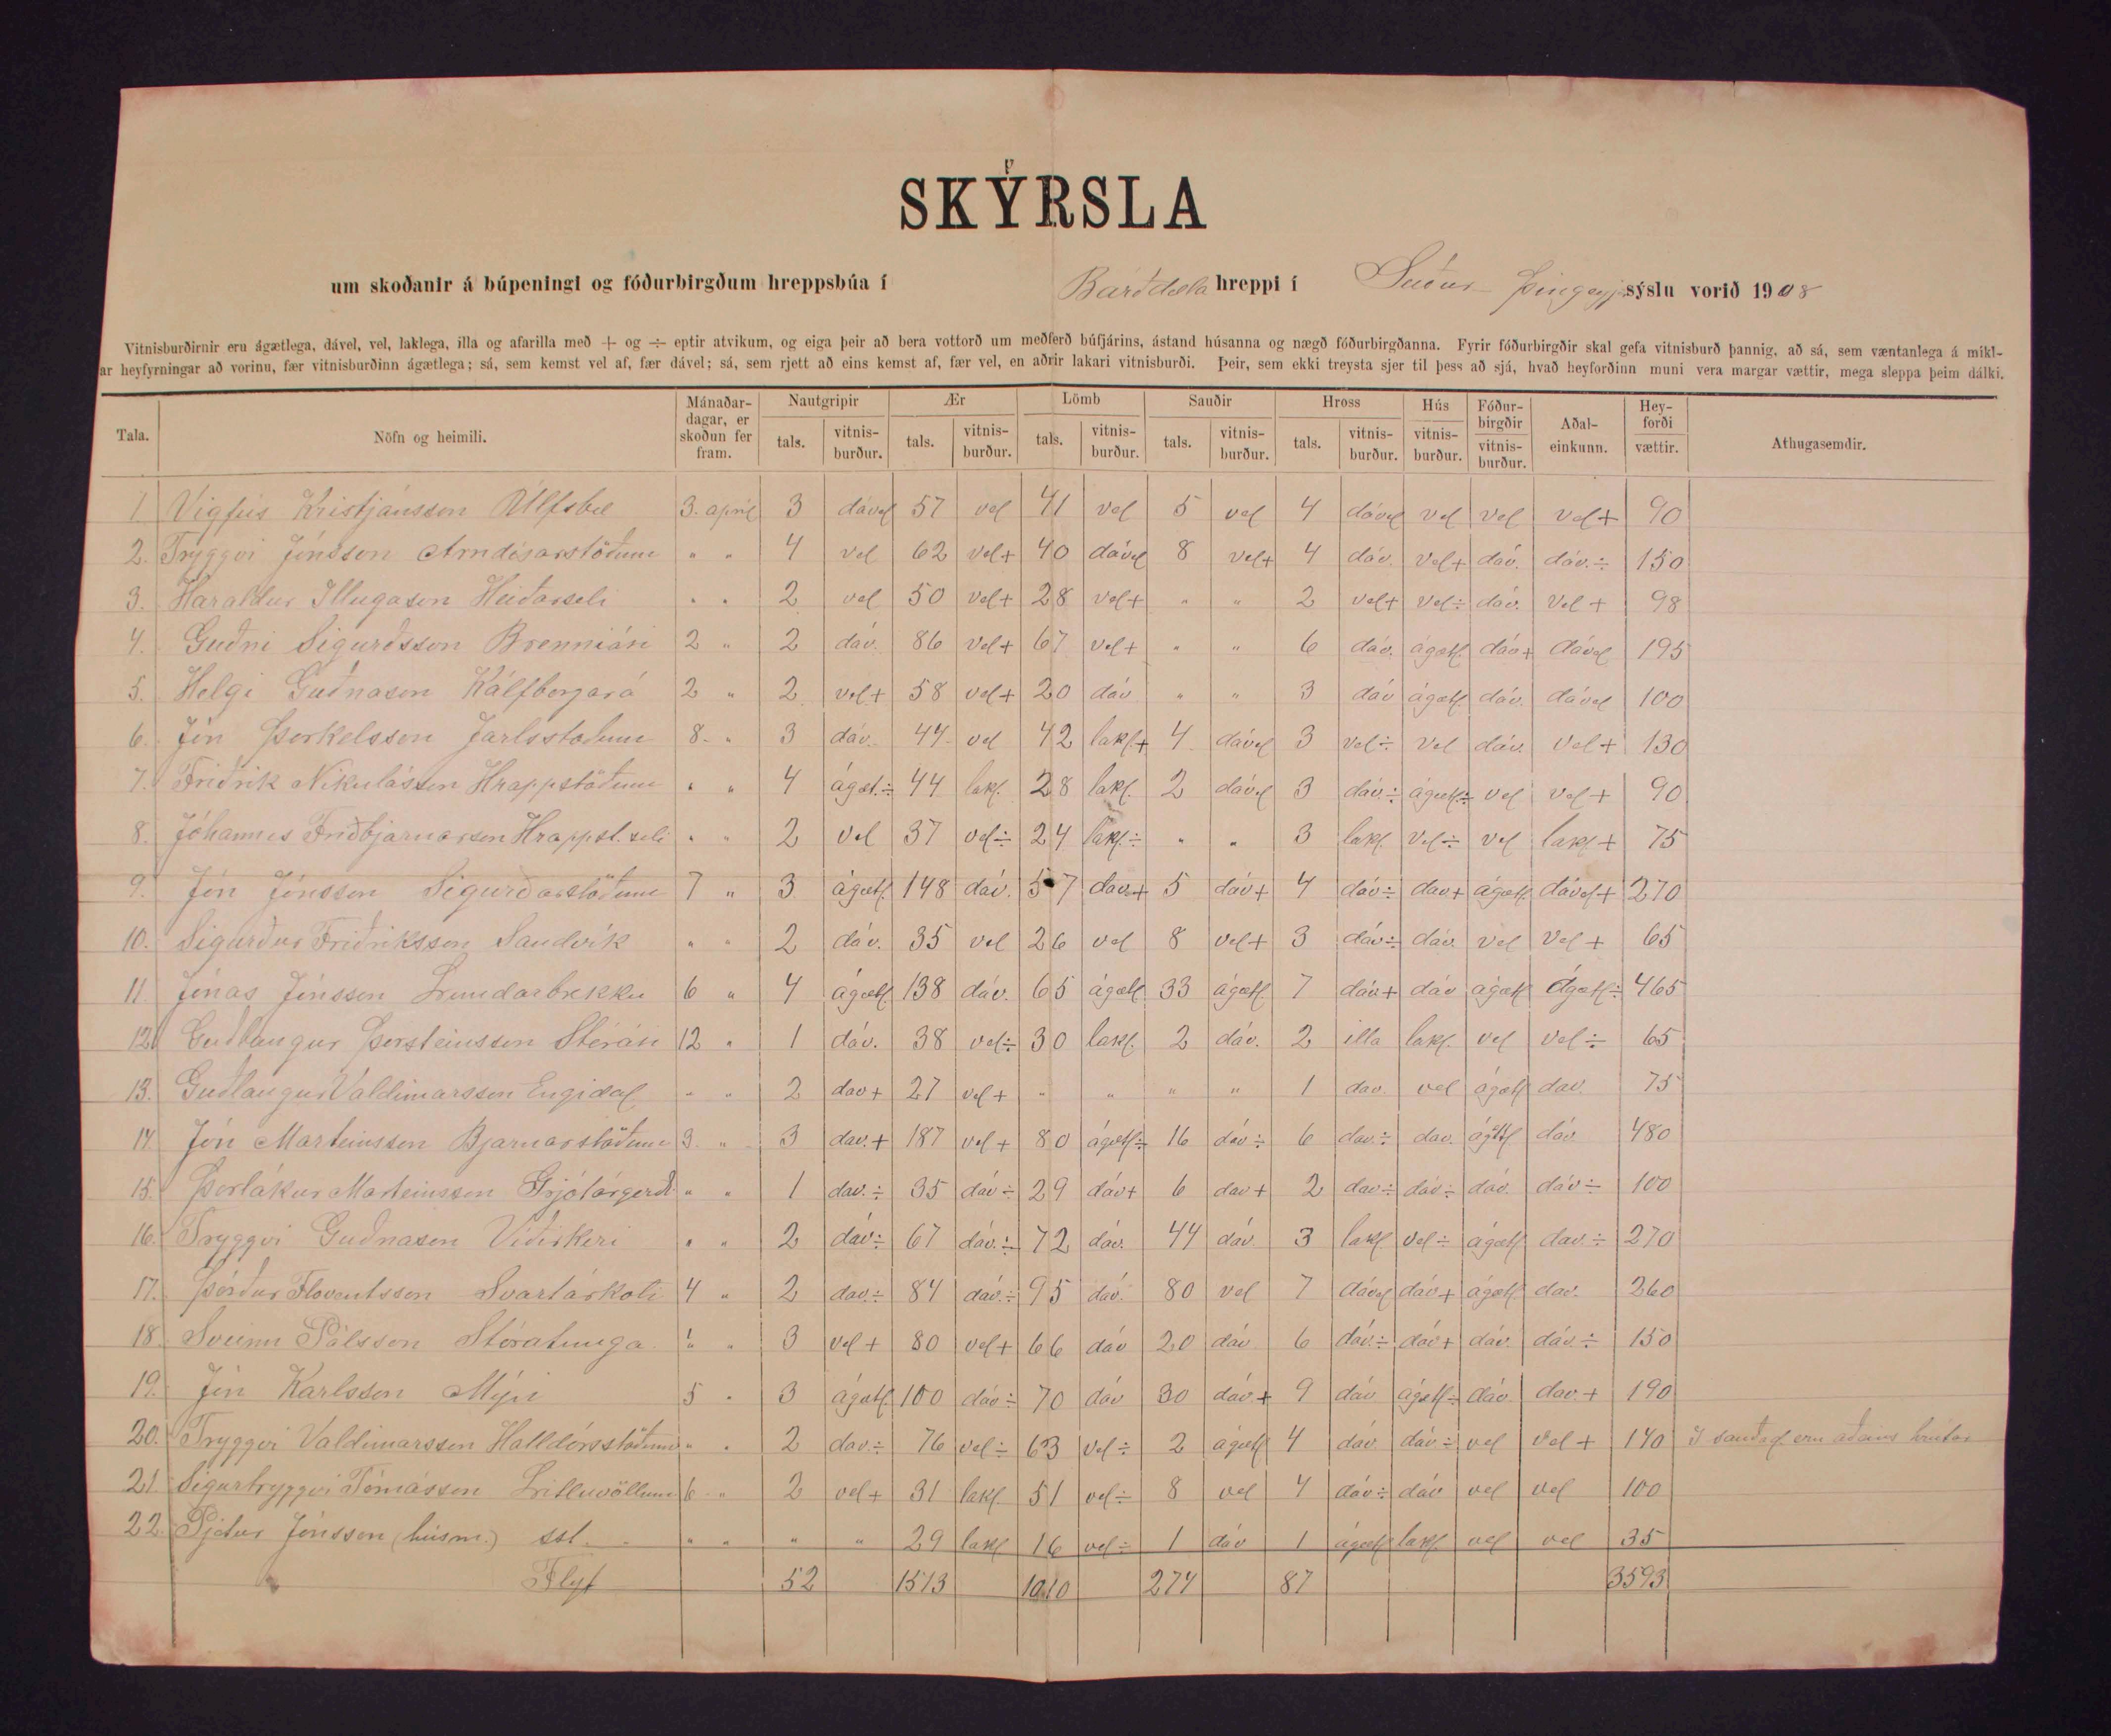 SKÝRSLA
um skoðanir á búpeningi og fóðurbirgðum hreppsbúa í Bárðdæla hreppi í Suður-Þingeyjar sýslu vorið 1908
Vitnisburðirnir eru ágætlega, dável, vel, laklega, illa og afarilla með + og ÷ eptir atvikum, og eiga þeir að bera vottorð um meðferð búfjárins, ástand húsanna og nægð fóðurbirgðanna. Fyrir fóðurbirgðir skal gefa vitnisburð þannig, að sá, sem væntanlega á mikl-
ar heyfyrningar að vorinu, fær vitnisburðinn ágætlega; sá, sem kemst vel af, fær dável; sá, sem rjett að eins kemst af, fær vel, en aðrir lakari vitnisburði. Þeir, sem ekki treysta sjer til þess að sjá, hvað heyforðinn muni vera margar vættir, mega sleppa þeim dálki.
Tala. Nöfn og heimili. Mánaðar-dagar, er skoðun fer fram. Nautgripir Ær Lömb Sauðir Hross Hús Fóður-birgðir Aðal-einkunn. Hey-forði Athugasemdir.
tals. vitnis-burður. tals. vitnis-burður. tals. vitnis-burður. tals. vitnis-burður. tals. vitnis-burður. vitnis-burður. vitnis-burður. vættir.
1 Vigfús Kristjánsson Úlfsbæ 3. apríl 3 dável 57 vel 41 vel 5 vel 4 dável vel vel vel+ 90
2. Tryggvi Jónsson Arndísarstöðum " " 4 vel 62 vel+ 40 dável 8 vel+ 4 dáv. vel+ dáv. dáv.÷ 150
3. Haraldur Illugason Heiðarseli " " 2 vel 50 vel+ 28 vel+ " " 2 vel+ vel÷ dáv. vel+ 98
4. Guðni Sigurðsson Brenniási 2 " 2 dáv. 86 vel+ 67 vel+ " " 6 dáv. ágætl. dáv+ dável 195
5. Helgi Guðnason Kálfborgará 2 " 2 vel+ 58 vel+ 20 dáv " " 3 dáv ágætl. dáv. dável 100
6. Jón Þorkelsson Jarlsstöðum 8. " 3 dáv. 44 vel 42 lakl+ 4 dável 3 vel÷ vel dáv. vel+ 130
7. Friðrik Nikulásson Hrappstöðum " " 4 ágæt.÷ 44 lakl. 28 lakl. 2 dável 3 dáv.÷ ágætl÷ vel vel+ 90
8. Jóhannes Friðbjarnarson Hrappst.seli " " 2 vel 37 vel÷ 24 lakl.÷ " " 3 lakl vel÷ vel lakl+ 75
9. Jón Jónsson Sigurðarstöðum 7 " 3 ágætl. 148 dáv. 57 dáv+ 5 dáv+ 4 dáv÷ dav+ ágætl dável+ 270
10. Sigurður Friðriksson Sandvík " " 2 dáv. 35 vel 26 vel 8 vel+ 3 dáv÷ dáv. vel vel+ 65
11. Jónas Jónsson Lundarbrekku 6 " 4 ágætl. 138 dáv. 65 ágætl 33 ágætl. 7 dáv+ dáv ágætl ágætl÷ 465
12. Guðlaugur Þorsteinsson Stórási 12 " 1 dáv. 38 vel÷ 30 lakl. 2 dáv. 2 illa lakl. vel vel÷ 65
13. Guðlaugur Valdimarsson Engidal " " 2 dav+ 27 vel+ " " " " 1 dav. vel ágætl dav. 75
14. Jón Marteinsson Bjarnarstöðum 3. " 3 dav.+ 187 vel+ 80 ágætl÷ 16 dáv÷ 6 dav.÷ dav. ágætl dáv. 480
15. Þorlákur Marteinsson Grjótárgerði " " 1 dav.÷ 35 dáv÷ 29 dáv+ 6 dav+ 2 dav÷ dáv÷ dáv. dáv÷ 100
16. Tryggvi Guðnason Víðirkeri " " 2 dáv÷ 67 dáv.÷ 72 dáv. 44 dáv. 3 lakl. vel÷ ágætl dav.÷ 270
17. Þórður Flóventsson Svartárkoti 4 " 2 dav.÷ 84 dáv.÷ 95 dáv. 80 vel 7 dável dáv+ ágætl dav. 260
18. Sveinn Pálsson Stóratunga " " 3 vel+ 80 vel+ 66 dáv 20 dáv 6 dáv.÷ dáv+ dáv. dáv.÷ 150
19. Jón Karlsson Mýri 5 " 3 ágætl. 100 dáv÷ 70 dáv 30 dáv+ 9 dáv ágætl÷ dáv. dav.+ 190
20. Tryggvi Valdimarsson Halldórsstöðum " " 2 dav.÷ 76 vel÷ 63 vel÷ 2 ágætl 4 dáv. dáv÷ vel vel+ 140 Í sauðad. eru aðeins hrútar
21. Sigurtryggvi Tómásson Litluvöllum 6 " 2 vel+ 31 lakl. 51 vel÷ 8 vel 4 dáv÷ dáv vel vel 100
22. Pjetur Jónsson (húsm.) sst. " " " " 29 lakl 16 vel÷ 1 dáv 1 ágætl lakl. vel vel 35
Flyt 52 1513 1010 274 87 3593